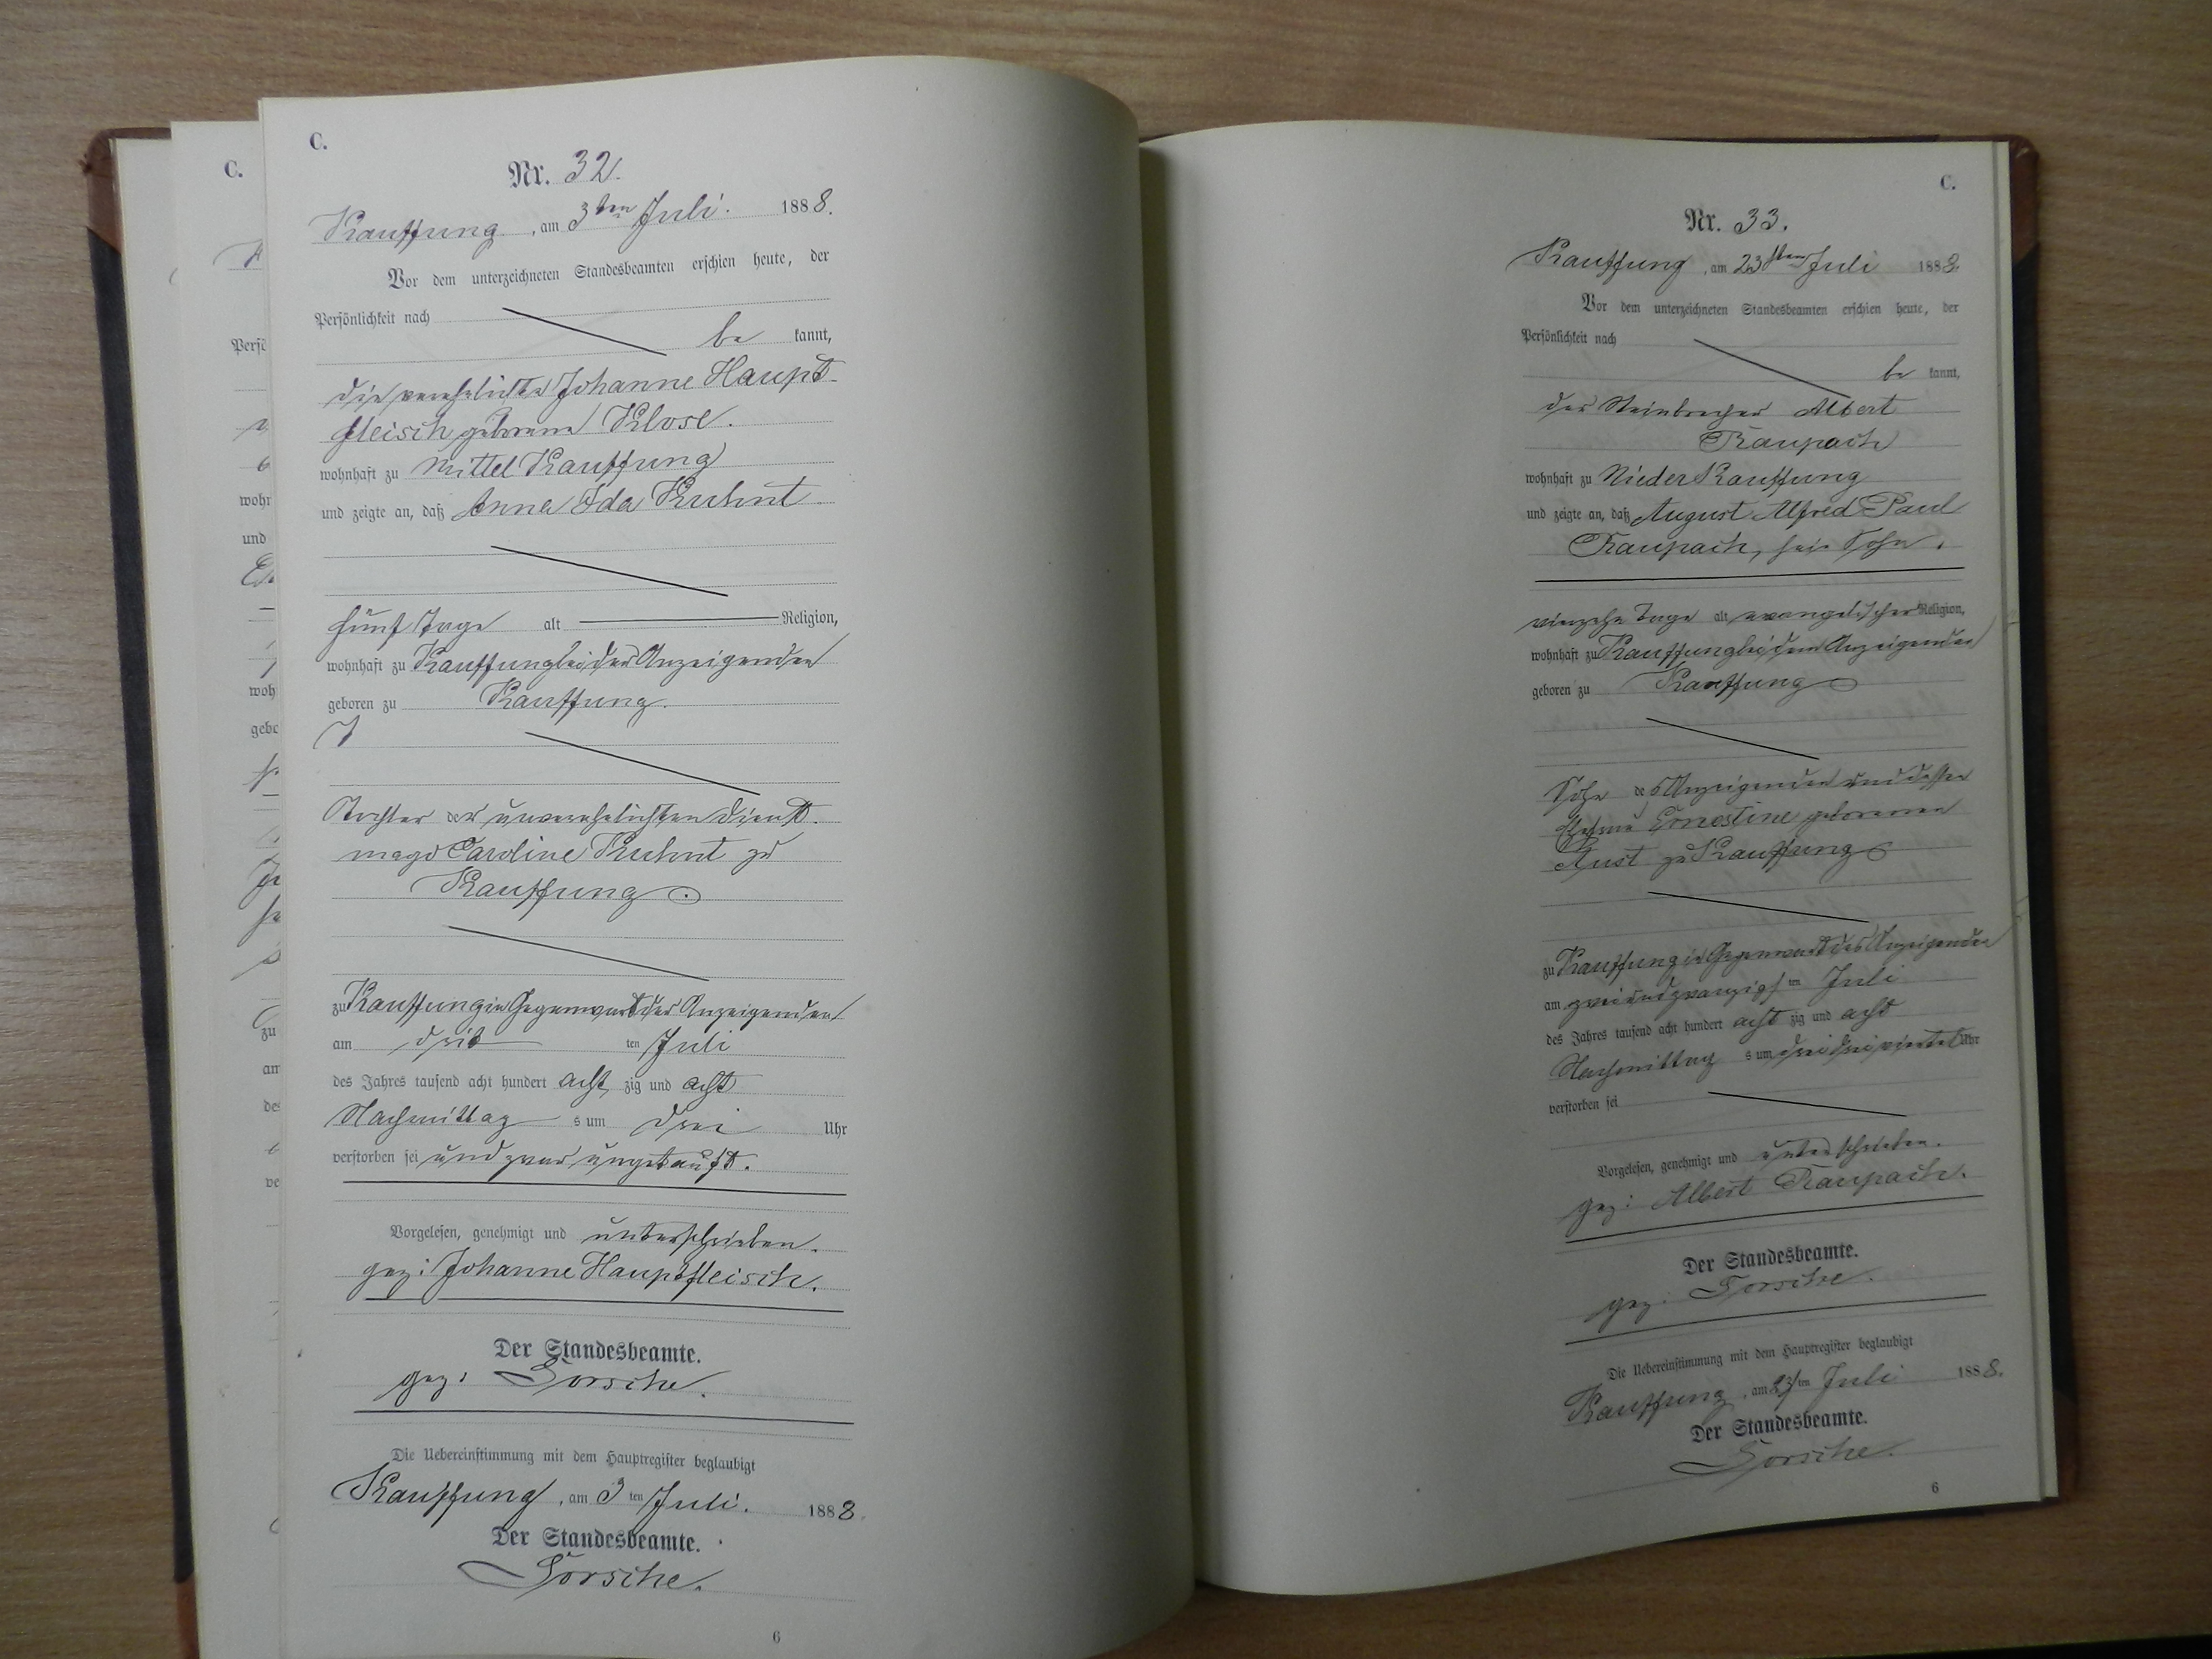 C.
Nr. 32.
Kauffung, am 3ten Juli. 1888.
Vor dem unterzeichneten Standesbeamten erschien heute, der
Persönlichkeit nach
be kannt,
die verehelichte Johanne Haupt-
fleisch geborene Klose.
wohnhaft zu Mittel Kauffung
und zeigte an, daß Anna Ida Kuhnt
fünf Tage alt Religion,
wohnhaft zu Kauffung bei der Anzeigenden
geboren zu Kauffung.
Tochter der unverehelichten Dienst-
magd Caroline Kuhnt zu
Kauffung.
zu Kauffung in Gegenwart der Anzeigenden
am drit ten Juli
des Jahres tausend acht hundert acht zig und acht
Nachmittag s um drei Uhr
verstorben sei und zwar ungetauft.
Vorgelesen, genehmigt und unterschrieben.
gez: Johanne Hauptfleisch.
Der Standesbeamte.
gez:
Die Uebereinstimmung mit dem Hauptregister beglaubigt
Kauffung, am 3 ten Juli. 1888.
Der Standesbeamte.
6
C.
Nr. 33.
Kauffung, am 23sten Juli 1888.
Vor dem unterzeichneten Standesbeamten erschien heute, der
Persönlichkeit nach
be kannt,
der Steinbrecher Albert
Raupach
wohnhaft zu Nieder Kauffung
und zeigte an, daß August Alfred Paul
Raupach, sein Sohn.
vierzehn Tage alt evangelischer Religion,
wohnhaft zu Kauffung bei dem Anzeigenden
geboren zu Kauffung
Sohn des Anzeigenden und dessen
Ehefrau Ernestine geborenen
Aust zu Kauffung
zu Kauffung in Gegenwart des Anzeigenden
am zweiundzwanzigs ten Juli
des Jahres tausend acht hundert acht zig und acht
Nachmittag s um drei dreiviertel Uhr
verstorben sei
Vorgelesen, genehmigt und unterschrieben.
gez: Albert Raupach.
Der Standesbeamte.
gez:
Die Uebereinstimmung mit dem Hauptregister beglaubigt
Kauffung, am 23 ten Juli 1888.
Der Standesbeamte.
6